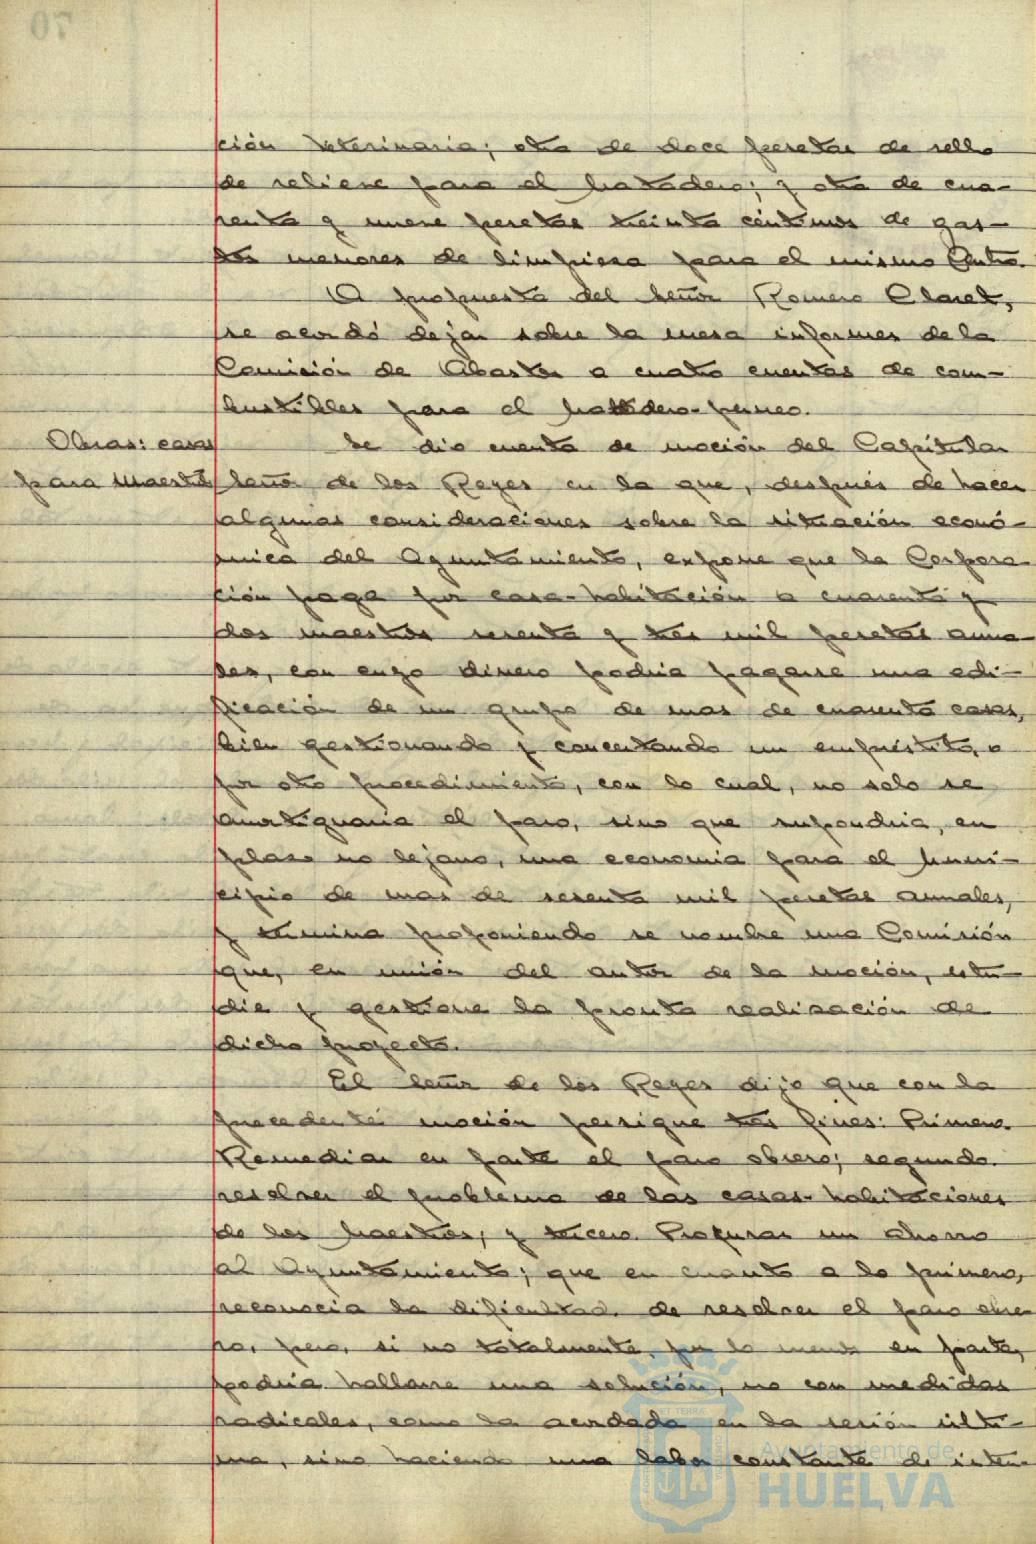 ción Veterinaria; otra de doce pesetas de sello
de relieve para el Matadero; y otra de cua-
renta y nueve pesetas treinta céntimos de gas-
tos menores de limpieza para el mismo Centro.
A propuesta del Señor Romero Claret,
se acordó dejar sobre la mesa informes de la
Comisión de Abastos a cuatro cuentas de com-
bustibles para el Matadero-perreo.
Obras: casas
para Maestros
Se dio cuenta de moción del Capitular
Señor de los Reyes en la que, después de hacer
algunas consideraciones sobre la situación econó-
mica del Ayuntamiento, expone que la Corpora-
ción paga por casa-habitación a cuarenta y
dos maestros sesenta y tres mil pesetas anua-
les, con cuyo dinero podria pagarse una edi-
ficación de un grupo de mas de cuarenta casas,
bien gestionando y concertando un empréstito, o
por otro procedimiento, con lo cual, no solo se
amortiguaria el paro, sino que supondria, en
plazo no lejano, una economia para el Muni-
cipio de mas de sesenta mil pesetas anuales,
y termina proponiendo se nombre una Comisión
que, en unión del autor de la moción, estu-
die y gestione la pronta realización de
dicho proyecto.
El Señor de los Reyes dijo que con la
precedente moción persigue tres fines: Primero.
Remediar en parte el paro obrero; segundo.
resolver el problema de las casas-habitaciones
de los Maestros; y tercero. Procurar un ahorro
al Ayuntamiento; que en cuanto a lo primero,
reconocia la dificultad de resolver el paro obre-
ro, pero, si no totalmente, por lo menos en parte,
podria hallarse una solución, no con medidas
radicales, como la acordada en la sesión últi-
ma, sino haciendo una labor constante de inten-
Ayuntamiento de
HUELVA